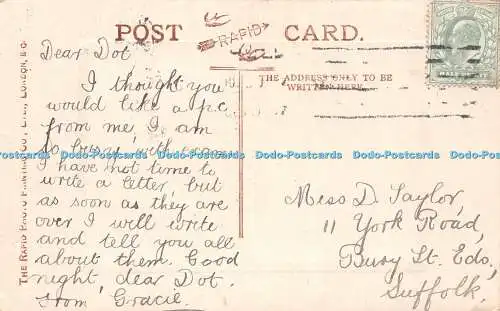 POST CARD.
RAPID
THE ADDRESS ONLY TO BE
WRITTEN HERE
HALFPENNY
Dear Dot
I thought you
would like a p.c
from me, I am
so busy with exams
I have not time to
write a letter, but
as soon as they are
over I will write
and tell you all
about them. Good
night, dear Dot.
From Gracie.
Miss D. Taylor,
11 York Road,
Bury St. Eds,
Suffolk.
THE RAPID PHOTO PRINTING CO., LTD., LONDON, E.C.
Dodo-Postcards Dodo-Postcards Dodo-Postcards Dodo-Postcards Dodo-Postcards